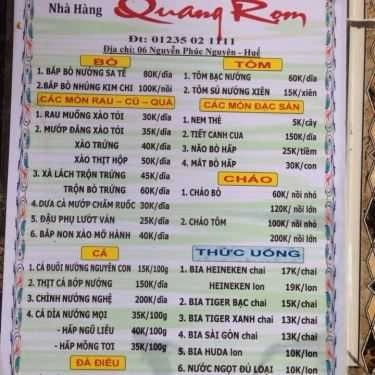 Nhà Hàng Quang Rom
Đt: 01235 02 1111
Địa chỉ: 06 Nguyễn Phúc Nguyên - Huế
BÒ
1. BẮP BÒ NƯỚNG SA TẾ 80K/dĩa
2.BẮP BÒ NHÚNG KIM CHI 100K/nồi
CÁC MÓN RAU – CỦ – QUẢ
1. RAU MUỐNG XÀO TỎI 30K/dĩa
2. MƯỚP ĐẮNG XÀO TỎI 35K/dĩa
XÀO TRỨNG 40K/dĩa
XÀO THỊT HỘP 50K/dĩa
3. XÀ LÁCH TRỘN TRỨNG 45K/dĩa
TRỘN BÒ TRỨNG 60K/dĩa
4.DƯA CÀ MƯỚP CHẤM RUỐC 30K/dĩa
5. ĐẬU PHỤ LƯỚT VÁN 25K/dĩa
6. BẮP NON XÀO MỠ HÀNH 40K/dĩa
CÁ
1. CÁ ĐUỐI NƯỚNG NGUYÊN CON 15K/100g
2. THỊT CÁ BÓP NƯỚNG 150K/dĩa
3. CHÌNH NƯỚNG NGHỆ 200K/dĩa
4. CÁ DÌA NƯỚNG MỌI 35K/100g
- HẤP NGŨ LIỄU 40K/100g
- HẤP MỒNG TOI 35K/100g
ĐÀ ĐIỂU
TÔM
1. TÔM BẠC NƯỚNG 60K/dĩa
2. TÔM SÚ NƯỚNG XIÊN 15K/xiên
CÁC MÓN ĐẶC SẢN
1. NEM THẺ 5K/cây
2. TIẾT CANH CUA 150K/dĩa
3. NÃO BÒ HẤP 25K/tiềm
4. MẮT BÒ HẤP 30K/con
CHÁO
1. CHÁO BÒ 60K/ nồi nhỏ
120K/ nồi lớn
2. CHÁO TÔM 100K/ nồi nhỏ
200K/ nồi lớn
THỨC UỐNG
1. BIA HEINEKEN chai 17K/chai
HEINEKEN lon 19K/lon
2. BIA TIGER BẠC chai 15K/chai
3. BIA TIGER XANH chai 13K/chai
4. BIA SÀI GÒN chai 13K/chai
5. BIA HUDA lon 10K/lon
6. NƯỚC NGỌT ĐỦ LOẠI 10K/lon